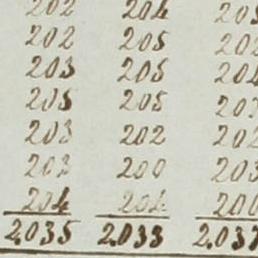 202 204 205
202 205 202
203 205 204
205 205 203
203 202 202
202 200 203
204 202 200
2035 2033 2037